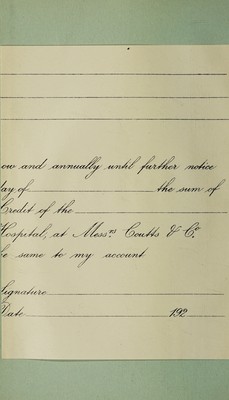 ow and annually until further notice
ay of the sum of
Credit of the
Hospital, at Messrs Coutts & Co.
e same to my account
Signature
Date 192